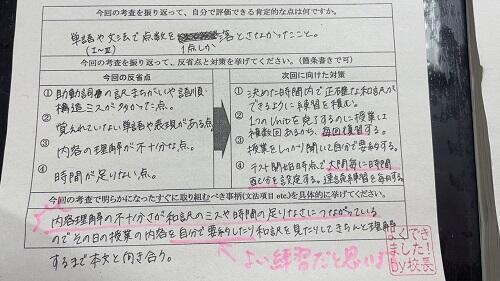 今回の考査を振り返って、自分で評価できる肯定的な点は何ですか。
単語や文法で点数を
(Ⅰ～Ⅲ) 1点しか 落とさなかったこと。
今回の考査を振り返って、反省点と対策を挙げてください。（箇条書きで可）
今回の反省点
① 助動詞の訳まちがいや語順・
構造ミスが多かった点。
② 覚えれていない単語や表現がある点
③ 内容の理解が不十分な点。
④ 時間が足りない点。
次回に向けた対策
① 決めた時間内で正確な和訳が
できるように練習を積む。
② 1つのUnitを完了するのに授業は
複数回あるから、毎回復習する。
③ 授業をしっかり聞いて自分で要約する。
④ テスト開始時点で大問毎に時間
配分を設定する。速読練習を毎日する。
今回の考査で明らかになったすぐに取り組むべき事柄(文法項目 etc.)を具体的に挙げてください。
内容理解の不十分さが和訳のミスや時間の足りなさにつながっている
のでその日の授業の内容を自分で要約したり和訳を見たりしてきちんと理解
するまで本文と向き合う。
よい練習だと思います
よくでき
ました!
by校長